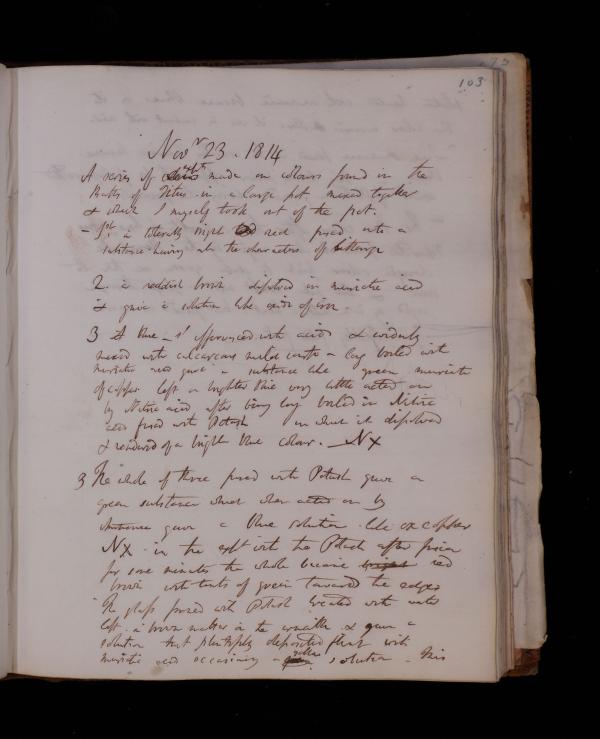 103
Nov.r 23. 1814
A series of made on colours found in the
Baths of Titus in a large pot mixed together
& which I myself took out of the pot.
- 1st a tolerably bright red fused into a
substance having all the characters of litharge
2. a reddish brown dissolved in muriatic acid
& gave a solution like oxide of iron.
3 A blue - it effervesced with acids & evidently
mixed with calcareous long boiled with
muriatic acid gave a substance like green muriate
of copper left a brighter blue very little acted on
by Nitric acid after being long boiled in Nitric
acid fused with Potash in it dissolved
& rendered of a bright blue colour. - NX
3 The whole of three fused with Potash gave a
green substance which when acted on by
gave a blue solution like ox copper
NX. in the expt with the Potash after fusion
for some minutes the whole became red
brown with tints of green toward the edges
The glass fused with Potash treated with water
left a brown matter in the & gave a
solution that plentifully deposited with
muriatic acid occasioning a yellow solution. This